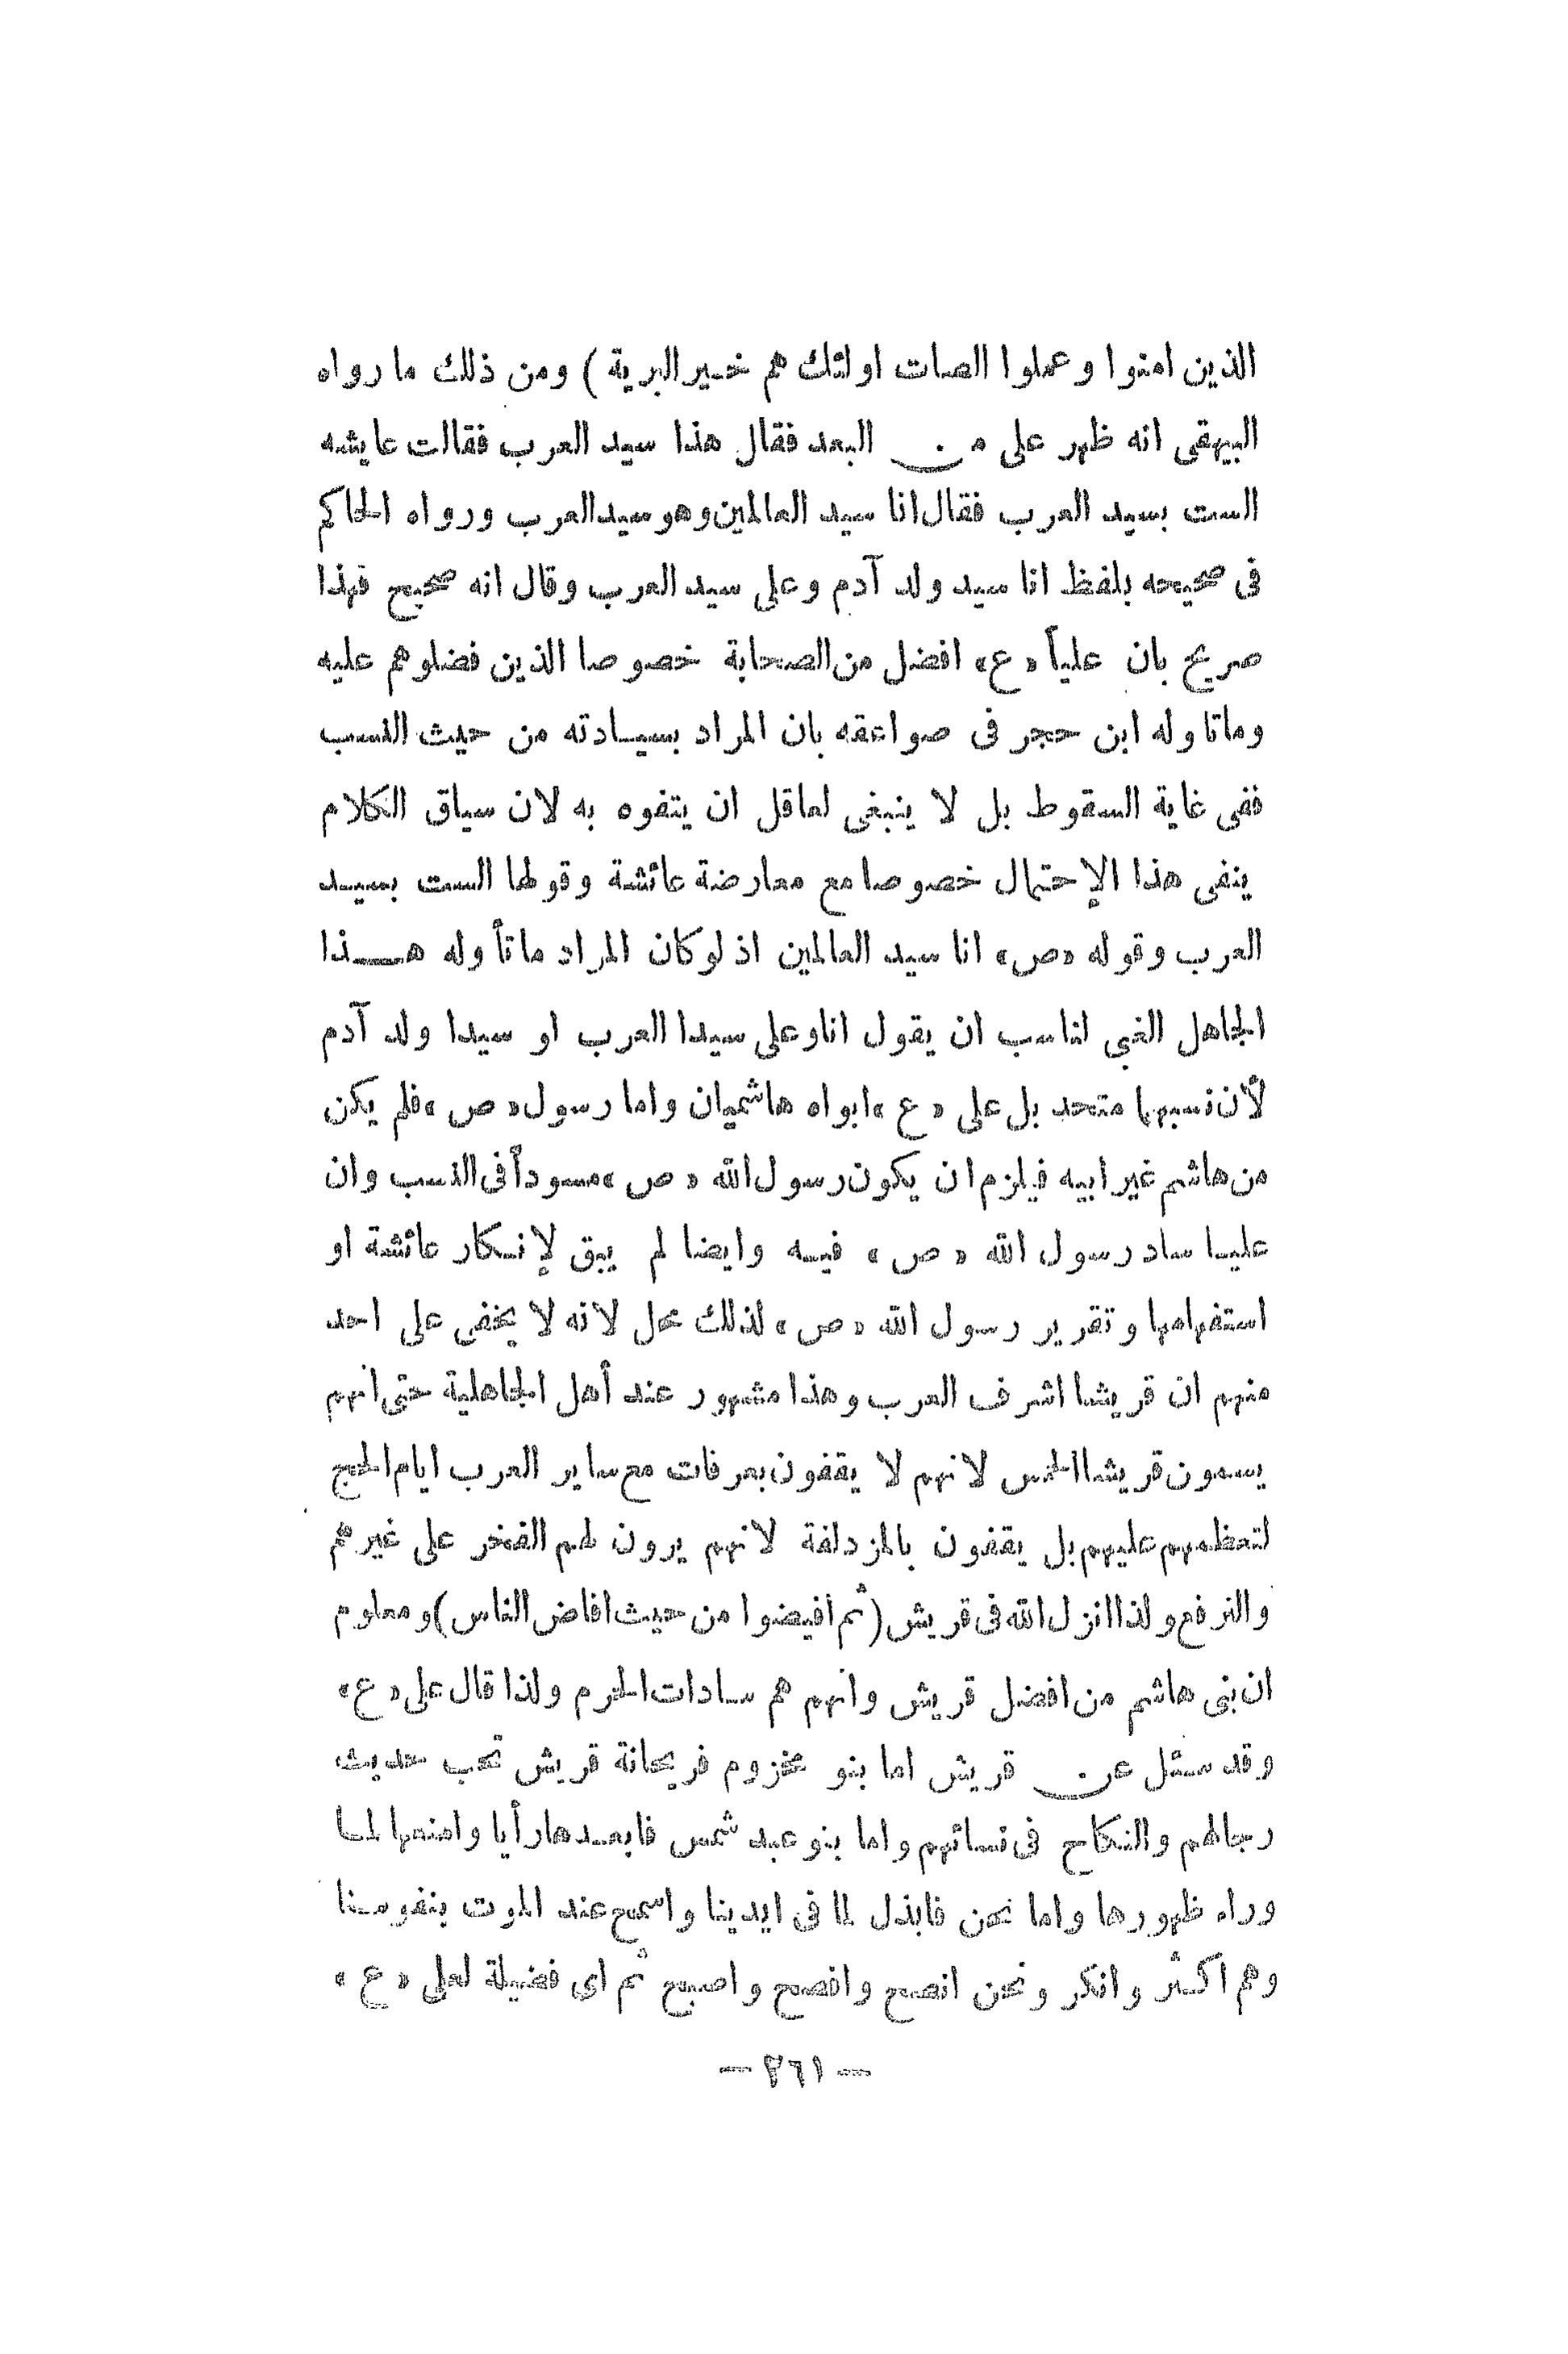 الذين امنوا وعملوا الصات اولئك هم خير البرية ) ومن ذلك ما رواه
البيهقى انه ظهر على من البعد فقال هذا سيد العرب فقالت عايشه
الست بسيد العرب فقال انا سيد العالمين وهو سيد العرب ورواه الحاكم
فى صحيحه بلفظ انا سيد ولد آدم وعلى سيد العرب وقال انه صحيح فهذا
صريح بان علياً «ع» افضل من الصحابة خصوصا الذين فضلوهم عليه
وماتاوله ابن حجر فى صواعقه بان المراد بسيادته من حيث النسب
ففى غاية السقوط بل لا ينبغى لعاقل ان يتفوه به لان سياق الكلام
ينفى هذا الإحتمال خصوصا مع معارضة عائشة وقولها الست بسيد
العرب وقوله «ص» انا سيد العالمين اذ لو كان المراد ماتأوله هذا
الجاهل الغبى لناسب ان يقول انا وعلى سيدا العرب او سيدا ولد آدم
لأن نسبهما متحد بل على «ع» ابواه هاشميان واما رسول «ص» فلم يكن
من هاشم غير ابيه فيلزم ان يكون رسول الله «ص» مسوداً فى النسب وان
عليا ساد رسول الله «ص» فيه وايضا لم يبق لإنكار عائشة او
استفهامها وتقرير رسول الله «ص» لذلك محل لانه لا يخفى على احد
منهم ان قريشا اشرف العرب وهذا مشهور عند أهل الجاهلية حتى انهم
يسمون قريشا الحمس لانهم لا يقفون بعرفات مع ساير العرب ايام الحج
لتعظمهم عليهم بل يقفون بالمزدلفة لانهم يرون لهم الفخر على غيرهم
والترفع ولذا انزل الله فى قريش (ثم افيضوا من حيث افاض الناس) ومعلوم
ان بنى هاشم من افضل قريش وانهم هم سادات الحرم ولذا قال على «ع»
وقد سئل عن قريش اما بنو مخزوم فريحانة قريش تحب حديث
رجالهم والنكاح فى نسائهم واما بنو عبد شمس فابعدها رأيا وامنعها لما
وراء ظهورها واما نحن فابذل لما فى ايدينا واسمح عند الموت بنفوسنا
وهم اكثر وانكر ونحن انصح وافصح واصبح ثم اى فضيلة لعلى «ع»
— ٣٦١ —